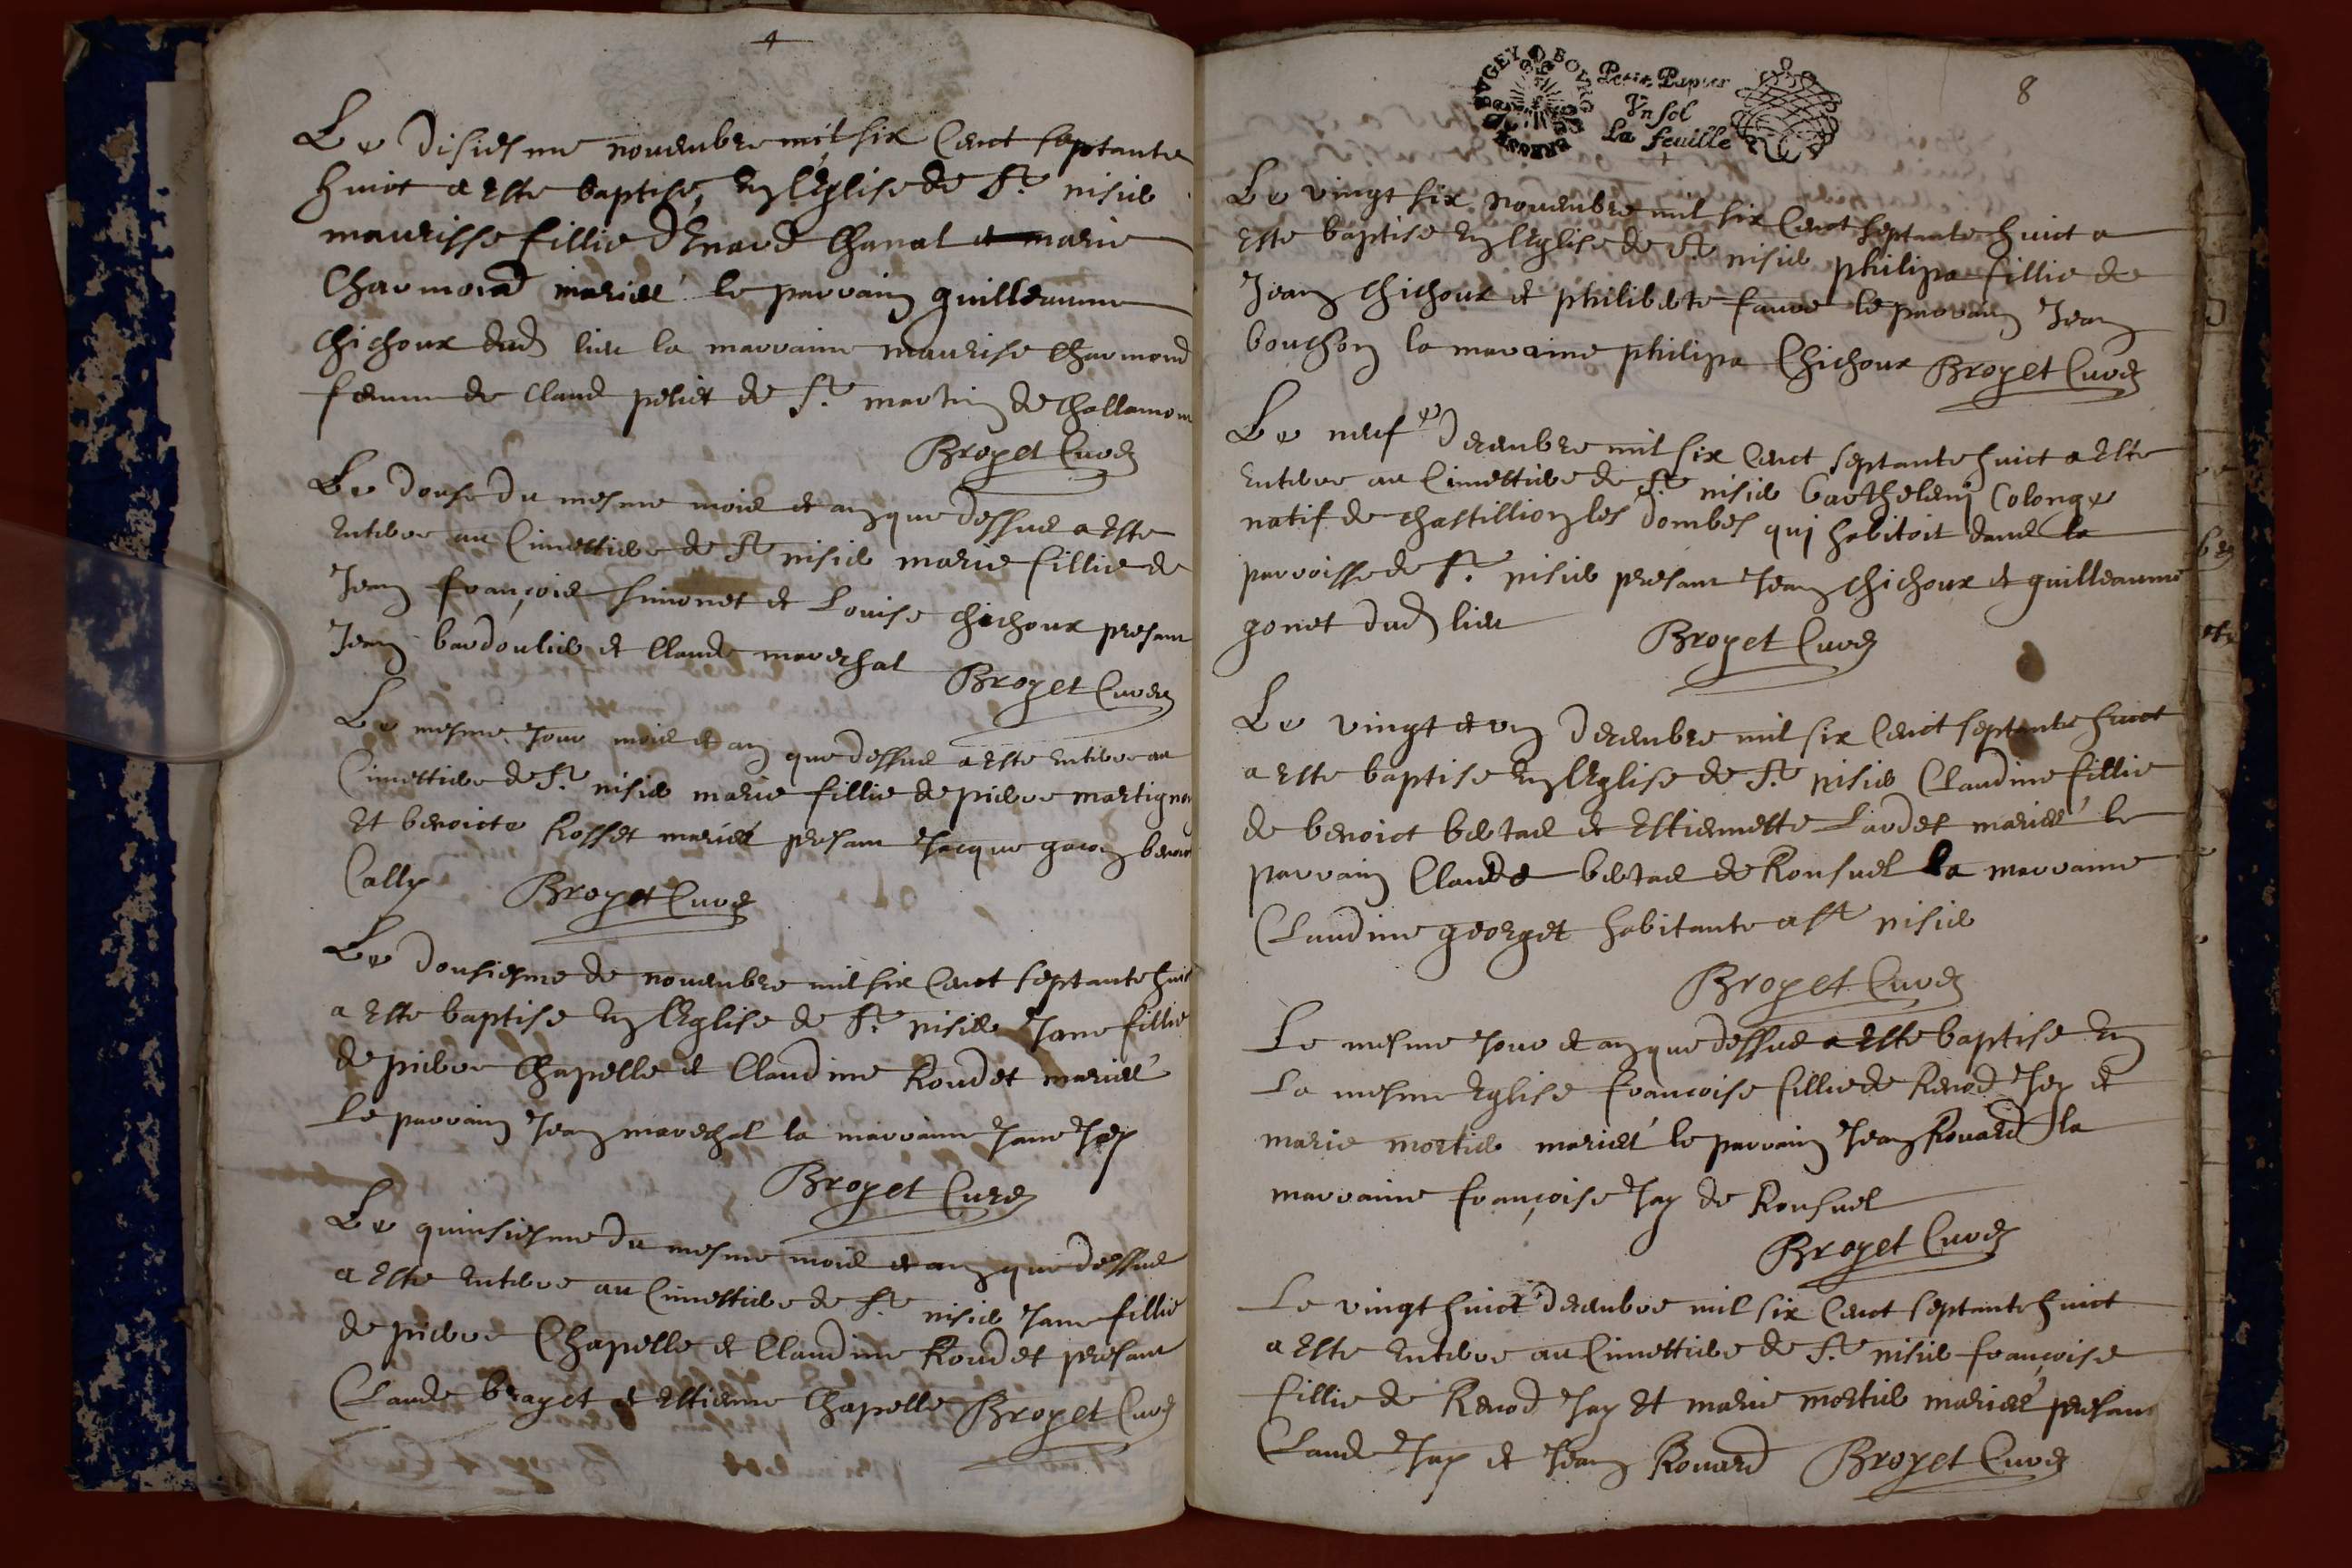 Le disiesme novembre mil six cent septante
huict a este baptise, en l'Eglise de St nisier
maurisse fillie d'Enard Chanal et marie
Charmond mariés le parrain guilleaume
Chichoux dud lieu la marraine maurise Charmond
femme de Claud petiet de St martin de Challamon
Broyet Curé
Le douse du mesme mois et an que dessus a este
enterre au Cimettiere de St nisier marie fillie de
Jean françois simonet et Louise Chichoux presant
Jean bardoulier et Claude marechal Broyet Curé
Le mesme Jour mois et an que dessus a este enterre au
Cimettiere de St nisier marie fillie de pierre martigno
Et benoicte Rosset mariés presant Jacque
Cally Broyet Curé
Le dousiesme de novembre mil six Cent septante huit
a Este baptise en l'Eglise de St nisier Jane fillie
de pierre Chapelle et Claudine Roudet mariés
Le parrain Jean marechal la marraine Jane Jay
Broyet Curé
Le quinsiesme du mesme mois et an que dessus
a Este enterre au Cimettiere de St nisier Jane fillie
de pierre Chapelle et Claudine Roudet presant
Claude brayet et Estienne Chapelle Broyet Curé
BUGEY BOURG
Petit Papier
Vn sol
La feuille
8
Le vingt six novembre mil six Cent septante huict a
Este baptise en l'Eglise de St nisier philipa fillie de
Jean Chichoux et philiberte favre le parrain Jean
bouchon la maraine philipa Chichoux Broyet Curé
Le neufe decembre mil six Cent septante huict a Este
enterre au Cimettiere de St nisier barthelemi Colonge
natif de chastillion les dombes qui habitoit dans la
parroisse de St nisier presant Jean Chichoux et guilleaume
gonet dud lieu Broyet Curé
Le vingt et un decembre mil six Cent septante huict
a Este baptise en l'Eglise de St nisier Claudine fillie
de benoict bertad et Estiennette Lardet mariés le
parrain Claude bertad de Ronsuel La marraine
Claudine georget habitante a St nisier
Broyet Curé
Le mesme Jour et an que dessus a Este baptise en
La mesme Eglise francoise fillie de Renod Jay et
marie mortier mariés le parrain Jean Rouard la
marraine françoise Jay de Ronsuel
Broyet Curé
Le vingt huict decembre mil six Cent septante huict
a Este enterre au Cimettiere de St nisier françoise
fillie de Renod Jay Et marie mortier mariés presant
Claude Jay et Jean Rouard Broyet Curé